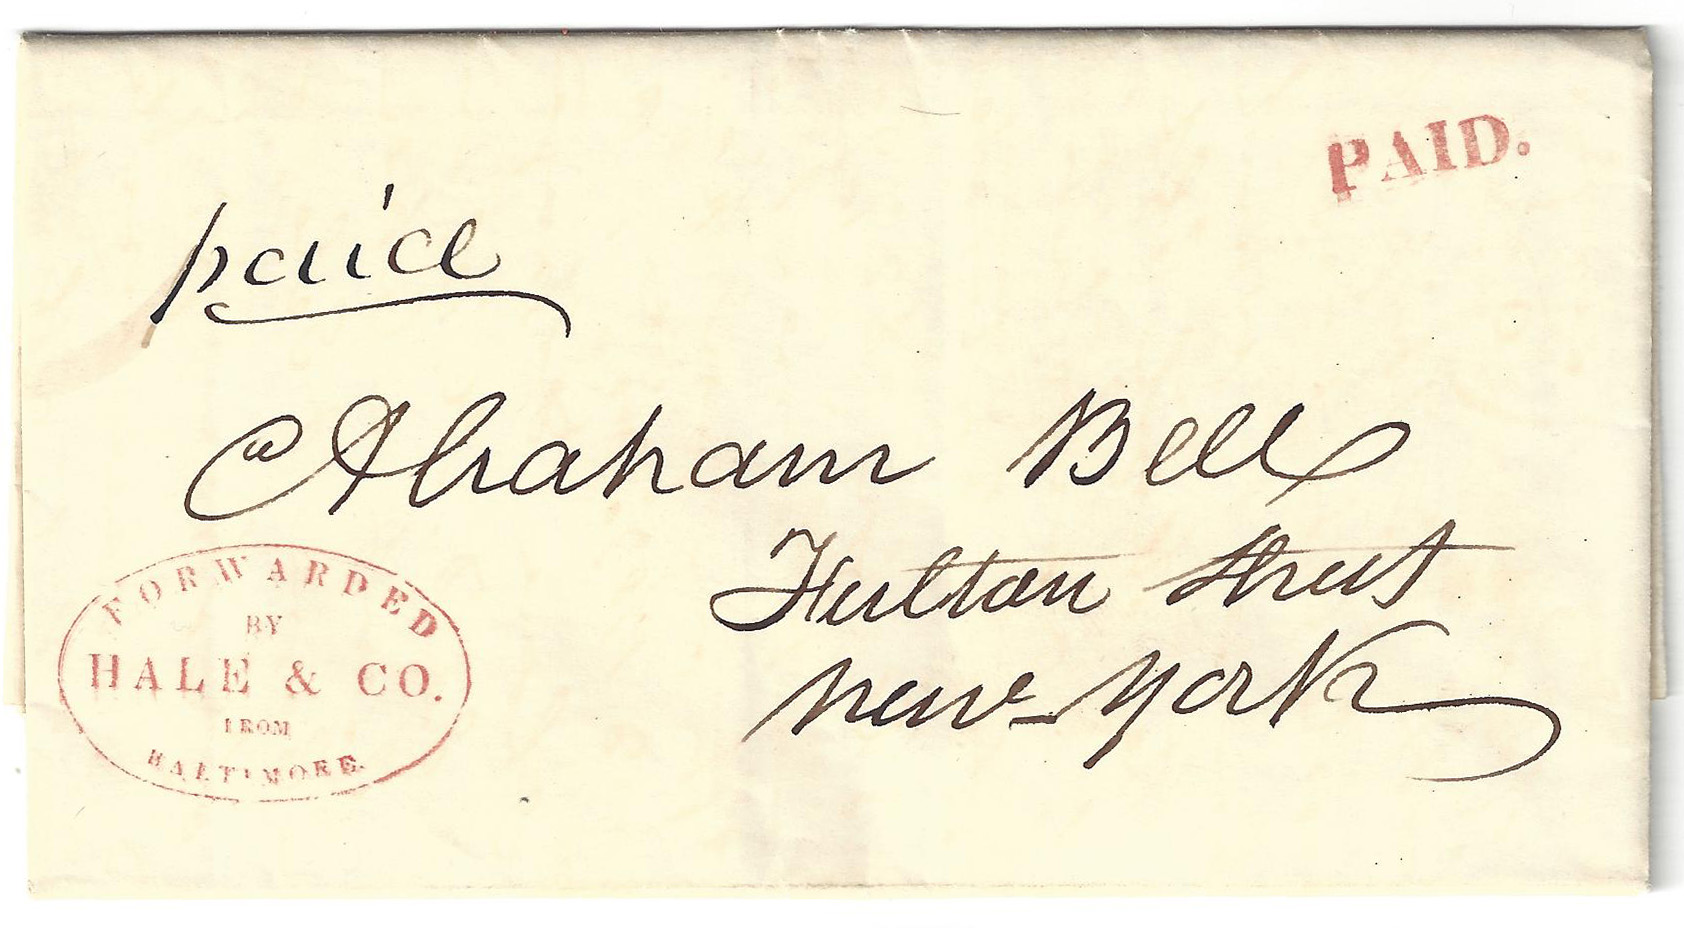 PAID.
paid
Abraham Bell
Fulton Street
New-York
FORWARDED
BY
HALE & CO.
FROM
BALTIMORE.